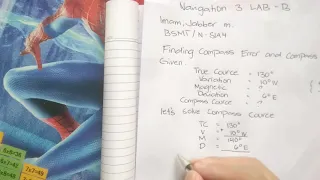 Navigation 3 LAB - B
Imam, Jabber m.
BSMT / N-S1A4
Finding Compass Error and Compass
Given
True Cource = 130°
Variation = 10°W
Magnetic = ?
Deviation = 6°E
Compass Course = ?
let's Solve Compass Cource
TC = 130°
V = + 10°W
M = 140°
D = 6°E